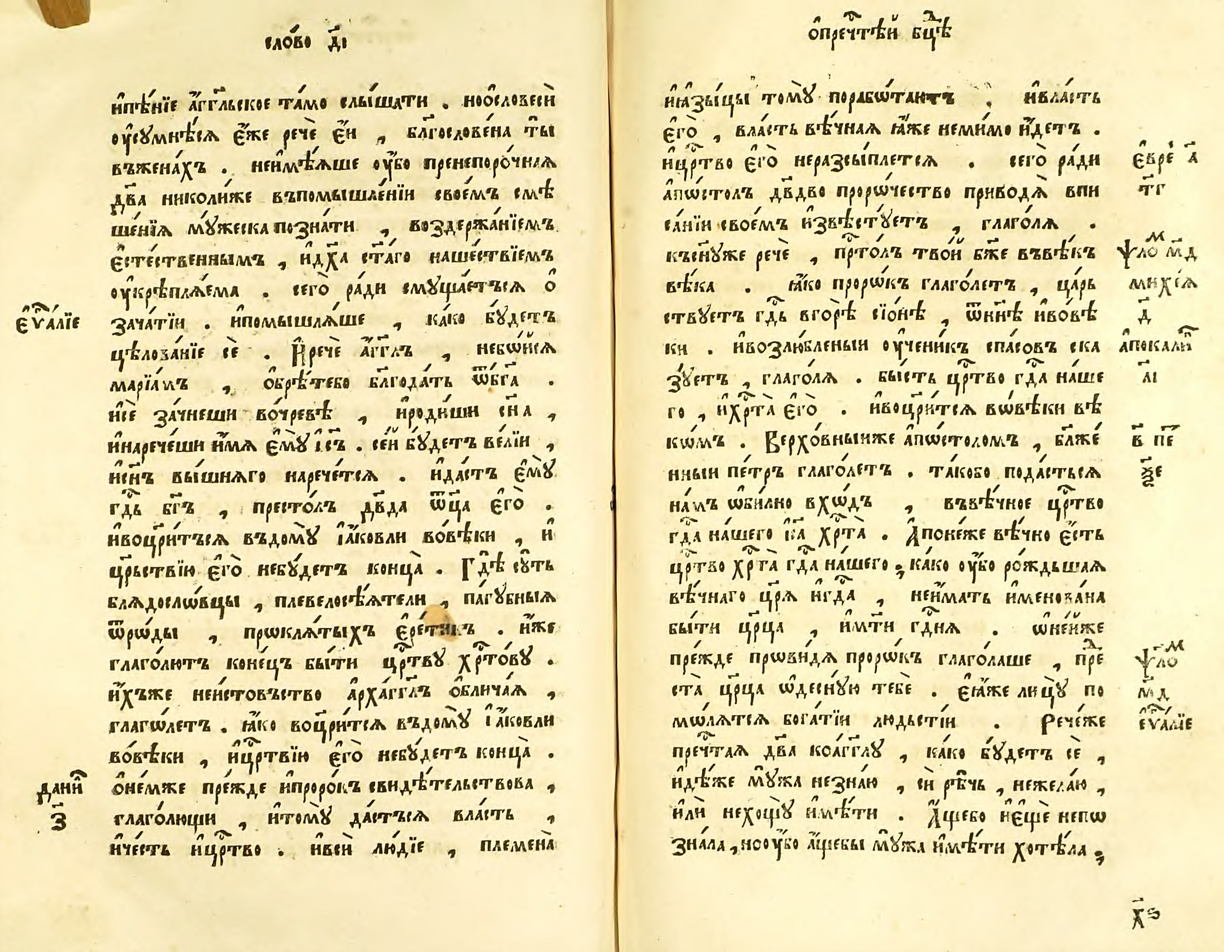 сло́во д҃і
и҆пѣ́нїе а҆́гг҃льское та́мо слы́шати . ноѡ҆словесѝ
оу҆сꙋмнѣ́сѧ є҆́же речѐ є҆́и , бл҃гослове́на ты̀
въжена́хъ . неи҆мѣ́ѧше оу҆́бо пренепоро́чнаѧ
дв҃а николи́же въпомышле́нїи свое́мъ смѣ
ше́нїѧ мꙋ́жеска позна́ти , воздержа́нїемъ
є҆сте́ственнымъ , и҆дх҃а ст҃а́го наше́ствїемъ
оу҆крѣплѧ́ема . сего̀ ра́ди смꙋща́етъсѧ ѻ
є҆ѵⷢ҇а́лїе
зача́тїи . и҆помышлѧ́ше , ка́ко бꙋ́детъ
цѣлова́нїе сѐ . И҆речѐ а҆́гг҃лъ , небѡ́йсѧ
марїа́мъ , ѡ҆брѣ́тебо бл҃года́ть ѿбг҃а .
и҆сѐ зачне́ши вочре́вѣ , и҆роди́ши сн҃а ,
и҆нарече́ши и҆́мѧ є҆мꙋ̀ і҆с҃ъ . се́й бꙋ́детъ ве́лїи ,
и҆сн҃ъ вы́шнѧго нарече́тсѧ . и҆да́стъ є҆мꙋ̀
гд҃ь бг҃ъ , престо́лъ дв҃да ѿц҃а є҆гѡ̀ .
и҆воцр҃и́тъсѧ въдомꙋ̀ і҆а́ковли вовѣ́ки , и҆
цр҃ьствїю є҆го̀ небꙋ́детъ конца̀ . Гдѣ̀ сꙋ́ть
блѧдосло́вцы , плевелосѣ́ѧтели , па́гꙋбныѧ
ѿро́ды , прѡклѧ́тыхъ є҆рети́къ . и҆́же
глаго́лютъ коне́цъ бы́ти цр҃тву хрⷭ҇то́вꙋ .
и҆́хъже неи́стовъство а҆рха́гг҃лъ ѡ҆блича́ѧ ,
глаго́летъ . ꙗ҆́ко воцр҃и́тсѧ въдомꙋ̀ і҆а́ковли
вовѣ́ки , и҆цр҃твїю є҆го̀ небꙋ́детъ конца̀ .
дани́ ѻ҆не́мже пре́жде и҆проро́къ свидѣ́тельствова ,
з҃ глаго́лющи , и҆томꙋ̀ да́стъсѧ вла́сть ,
и҆че́сть и҆цр҃тво . и҆всѝ лю́дїе , племена̀
ѻ҆пречⷭ҇тѣй бцⷣѣ
и҆ꙗ҆зы́цы томꙋ̀ порабо́таютъ , и҆вла́сть
є҆го̀ , власть вѣ́чнаѧ ꙗ҆́же неми́мо и҆́детъ .
и҆цр҃тво є҆го̀ неразсы́плетсѧ . сего̀ ра́ди є҆вре́ а҃
а҆пѡ́столъ дв҃дво проро́чество приводѧ̀ впи т҃г
са́нїи свое́мъ и҆звѣстꙋ́етъ , глаго́лѧ .
къснꙋже речѐ , прⷭ҇то́лъ тво́й бж҃е въвѣ́къ ѱало́ м҃д
вѣка . ꙗ҆́ко проро́къ глаго́летъ , ца́рь михе́ѧ
ствꙋетъ гд҃ь вгорѣ̀ сїѡ́нѣ , ѿнн҃ѣ и҆вовѣ́ д҃
ки . и҆возлю́бленыи оу҆чени́къ спа́совъ ска а҆покали́
зꙋетъ , глаго́лѧ . бы́сть цр҃тво гд҃а на́ше л҃і
го , и҆хрⷭ҇та̀ є҆го̀ . и҆воцр҃и́тсѧ вѡвѣ́ки вѣ
ко́мъ . Верхо́вныиже а҆по́столомъ , бл҃же́ в҃ пе́
нныи пе́тръ глаго́летъ . та́кобо пода́стьсѧ ѯ҃е
на́мъ ѡ҆би́лно вхо́дъ , въвѣ́чное цр҃тво
гд҃а на́шего і҆с҃а хрⷭ҇та̀ . А҆поне́же вѣ́чно є҆́сть
цр҃тво хрⷭ҇та̀ гд҃а на́шего ; ка́ко оу҆́бо ро́ждьшаѧ
вѣ́чнаго цр҃ѧ̀ и҆гд҃а , неи́мать и҆менована
бы́ти цр҃ца , и҆мт҃и гд҃нѧ . ѡ҆не́йже
пре́жде прови́дѧ проро́къ глаго́лаше , прⷣе ѱало́
ста̀ цр҃ца ѡ҆деснꙋ́ю тебѐ . є҆ѧ́же лицꙋ̀ по м҃д
мо́лѧтсѧ бога́тїи лю́дьстїи . Рече́же є҆ѵⷢ҇а́лїе
пречⷭ҇таѧ дв҃а коа҆́гг҃лꙋ , ка́ко бꙋ́детъ сѐ ,
и҆дѣ́же мꙋ́жа незна́ю , сѝ рѣ́чь , нежела́ю ,
и҆лѝ нехощꙋ̀ и҆мѣ́ти . А҆́щебо и҆є҆щѐ непо
зна́ла , нооу҆́бо а҆́щебы мꙋ́жа и҆мѣ́ти хотѣ́ла ;
х҃ѕ